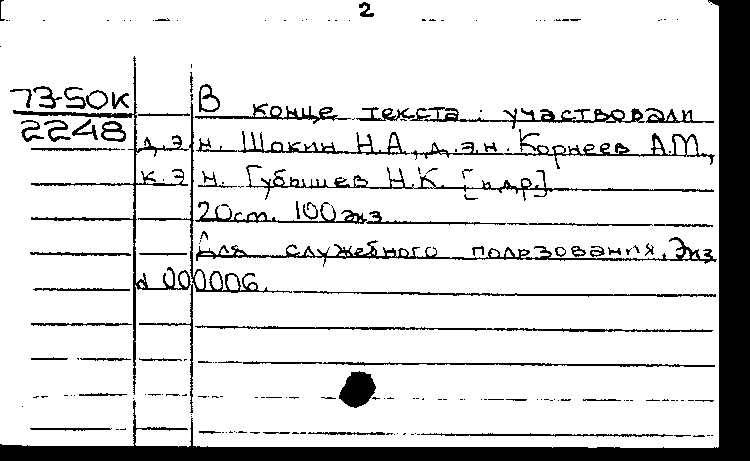 2
73-50К
2248
В конце текста: участвовали
д.э.н. Шокин Н.А., д.э.н. Корнеев А.М.,
к.э.н. Губышев Н.К. [и др.]
20см. 100экз
Для служебного пользования. Экз
000006.